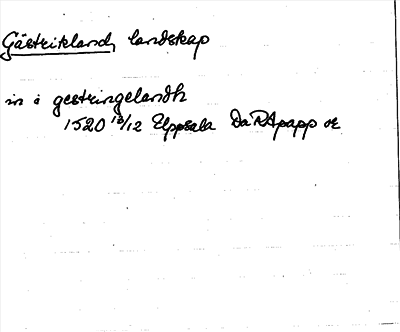 Gästrikland, landskap
in i gestringelandh
1520 18/12 Uppsala DaRApapp or